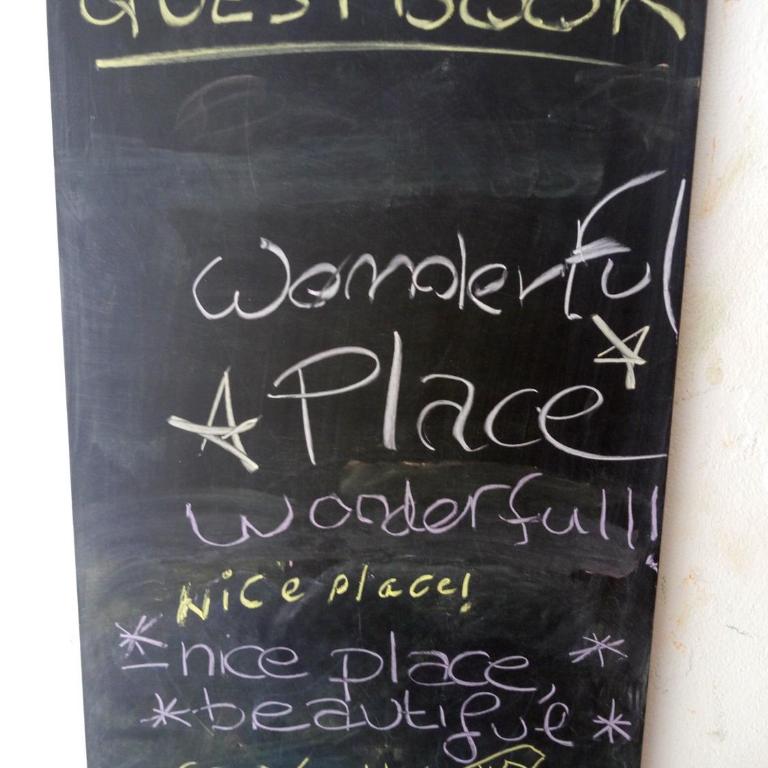 GUESTBOOK
Wonderful
Place
wonderful!!
Nice place!
nice place,
beautifgul